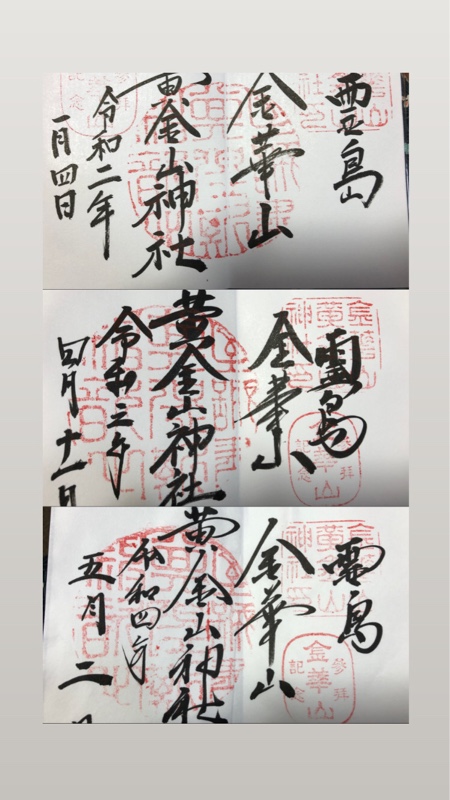 霊島
金華山
黄金山神社
令和二年
一月四日
霊島
金華山
黄金山神社
令和三年
四月十一日
霊島
金華山
黄金山神社
令和四年
五月二日
金華山
参拝
記念